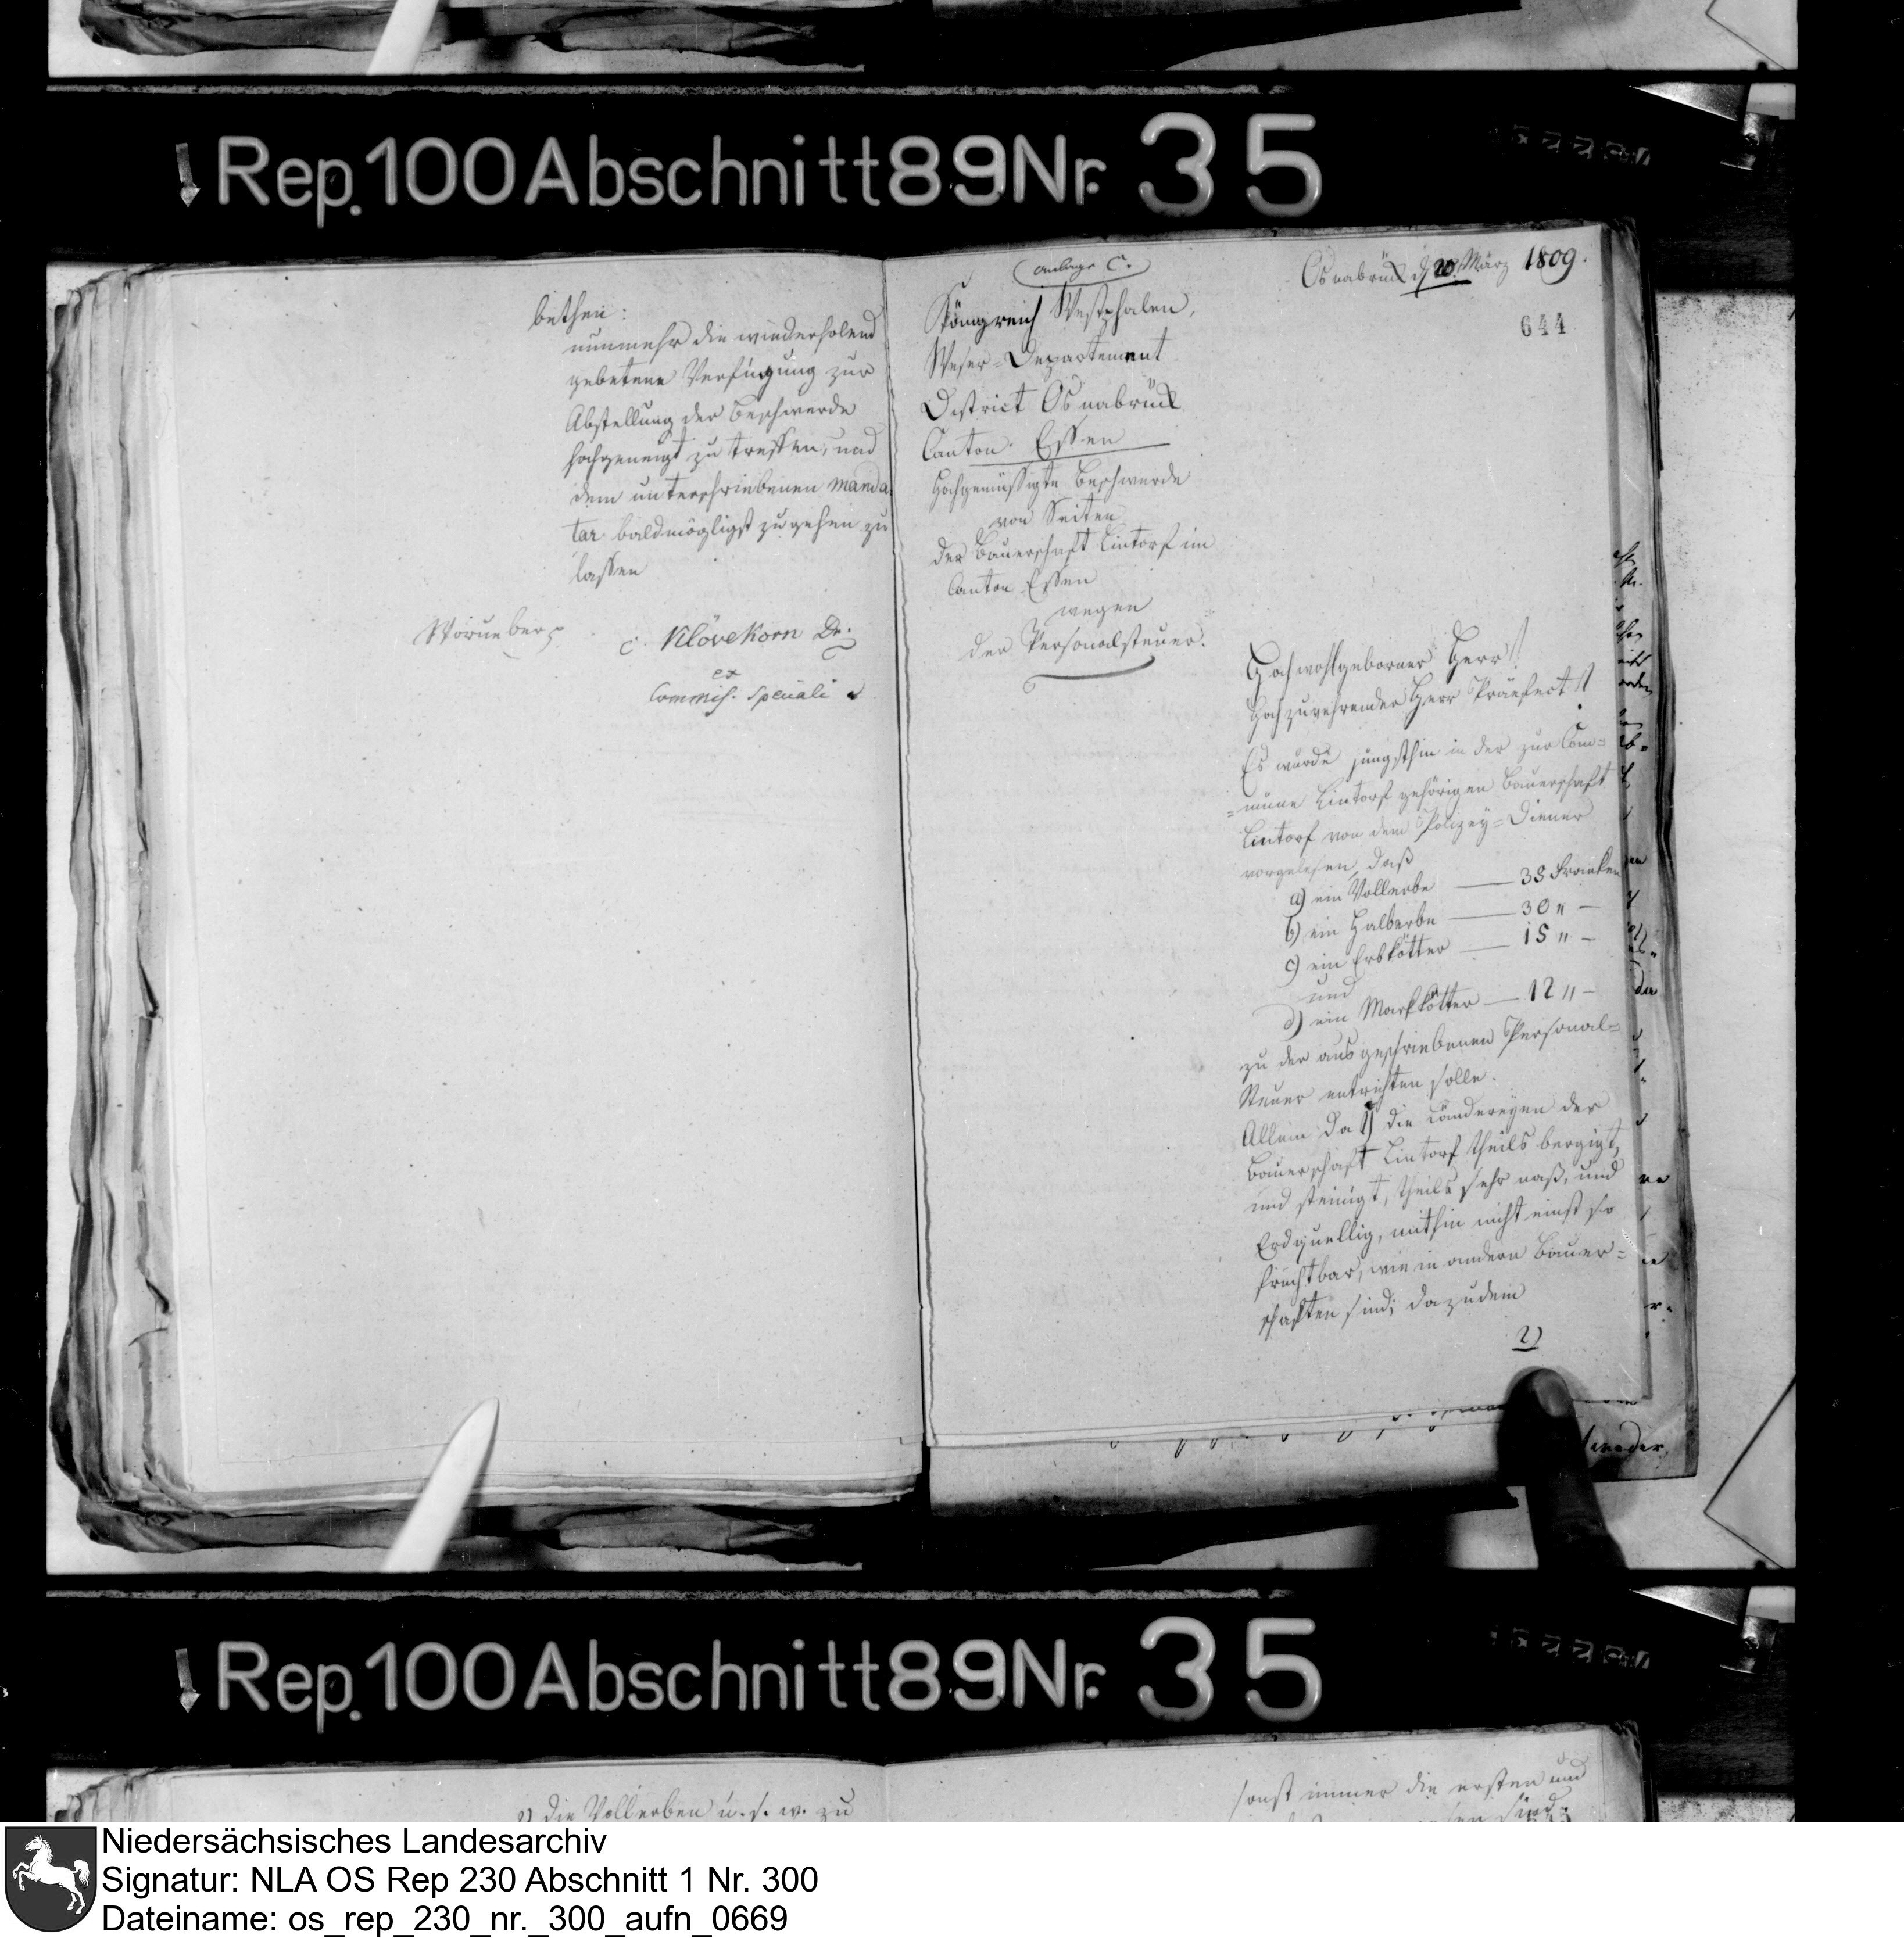 Rep. 100 Abschnitt 89 Nr. 35
bethen:
nunmehr die wiederholend
gebetene Verfügung zur
Abstellung der Beschwerde
hochgeneigt zu treffen, und
dem unterschriebenen Manda-
tar baldmögligst zugehen zu
lassen
C. Klövekorn Dr.
ex
Commis. Speciali
Anlage C.
Osnabrück d 20 März 1809.
644
Königreich Westphalen,
Weser-Departement
District Osnabrück
Canton Essen
Beschwerde
von Seiten
der Bauerschaft Lintorf im
Canton Essen
wegen
der Personalsteuer.
Hochwohlgeborner Herr!
Hochzuverehrender Herr Präefect!
Es wurde jüngsthin in der zur Com=
=müne Lintorf gehörigen Bauerschaft
Lintorf von dem Polizey=Diener
vorgelesen, daß
a) ein Vollerbe — 38 Franken
b) ein Halberbe — 30 " —
c) ein Erbkötter — 15 " —
und
d) ein Markkötter — 12 " —
zu der ausgeschriebenen Personal=
Steuer entrichten solle.
Allein da 1) die Ländereyen der
Bauerschaft Lintorf theils bergigt,
und steinigt, theils sehr naß, und
Erdquellig, mithin nicht einst so
fruchtbar, wie in andern Bauer=
schaften sind; dazudem
2)
Rep. 100 Abschnitt 89 Nr. 35
2) die Vollerben u. s. w. zu
sonst immer die ersten und
Niedersächsisches Landesarchiv
Signatur: NLA OS Rep 230 Abschnitt 1 Nr. 300
Dateiname: os_rep_230_nr._300_aufn_0669